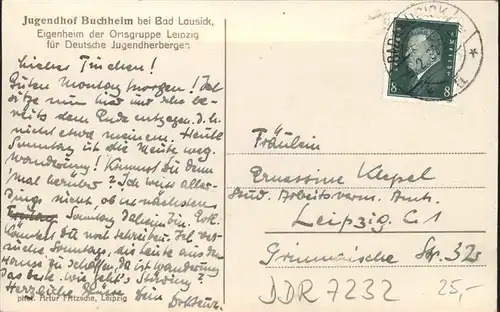 Jugendhof Buchheim bei Bad Lausick,
Eigenheim der Ortsgruppe Leipzig
für Deutsche Jugendherbergen
Liebes Tinchen!
Guten Montag morgen! Ich
sitze nun hier und sehe be-
reits dem Ende entgegen. d. h.
nicht etwa meinem. Heute
Sonntag ist die Meute weg.
Wanderung! Kannst Du denn
'mal herüber? Ich weiss aller-
dings nicht, ob ich nächsten
Sonntag daheim bin. Evtl.
könntest Du noch schreiben. Ich ver-
suche Sonntags, die Leute aus dem
Hause zu schaffen, da ist Wanderung
Das beste. Wie geht's
Herzliche Grüsse Dein
phot. Artur Fritzsche, Leipzig
8 8
Fräulein
Ernestine Klepel
Städ. Arbeitsverm. Amt.
Leipzig C 1
Grimmaische Str. 32
DDR 7232
25,-